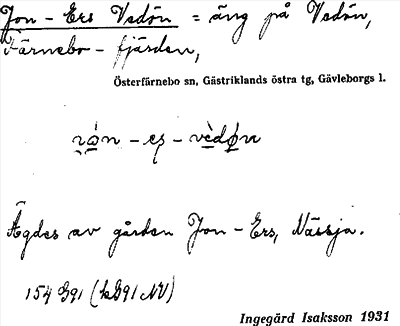 Jon-Ers Vedön = äng på Vedön,
Färnebo-fjärden,
Österfärnebo sn, Gästriklands östra tg, Gävleborgs l.
Ägdes av gården Jon-Ers, Nässja.
154 G91 (kG91 NV)
Ingegärd Isaksson 1931